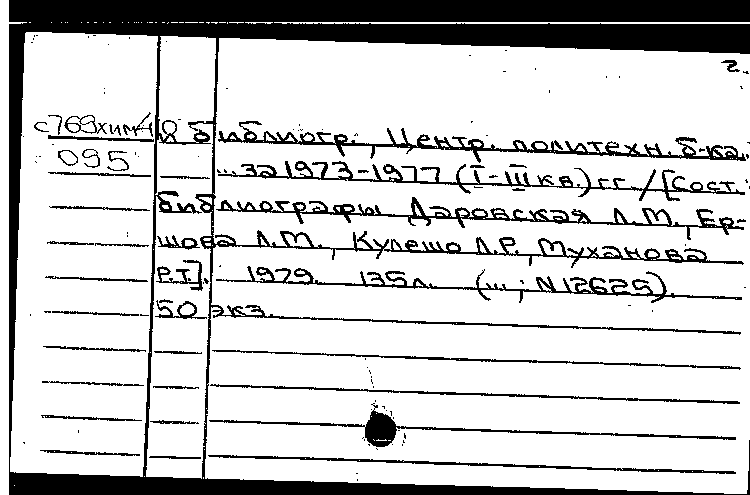 2.
с769хим4 я библиогр., Центр. политехн. б-ка.
095 ... за 1973-1977 (I-III кв.) гг. / [Сост.:
библиографы Даровская Л.М., Ер-
шова Л.М., Кулешо Л.Р., Муханова
Р.Т.]. 1979. 135л. (... ; N12625).
50 экз.